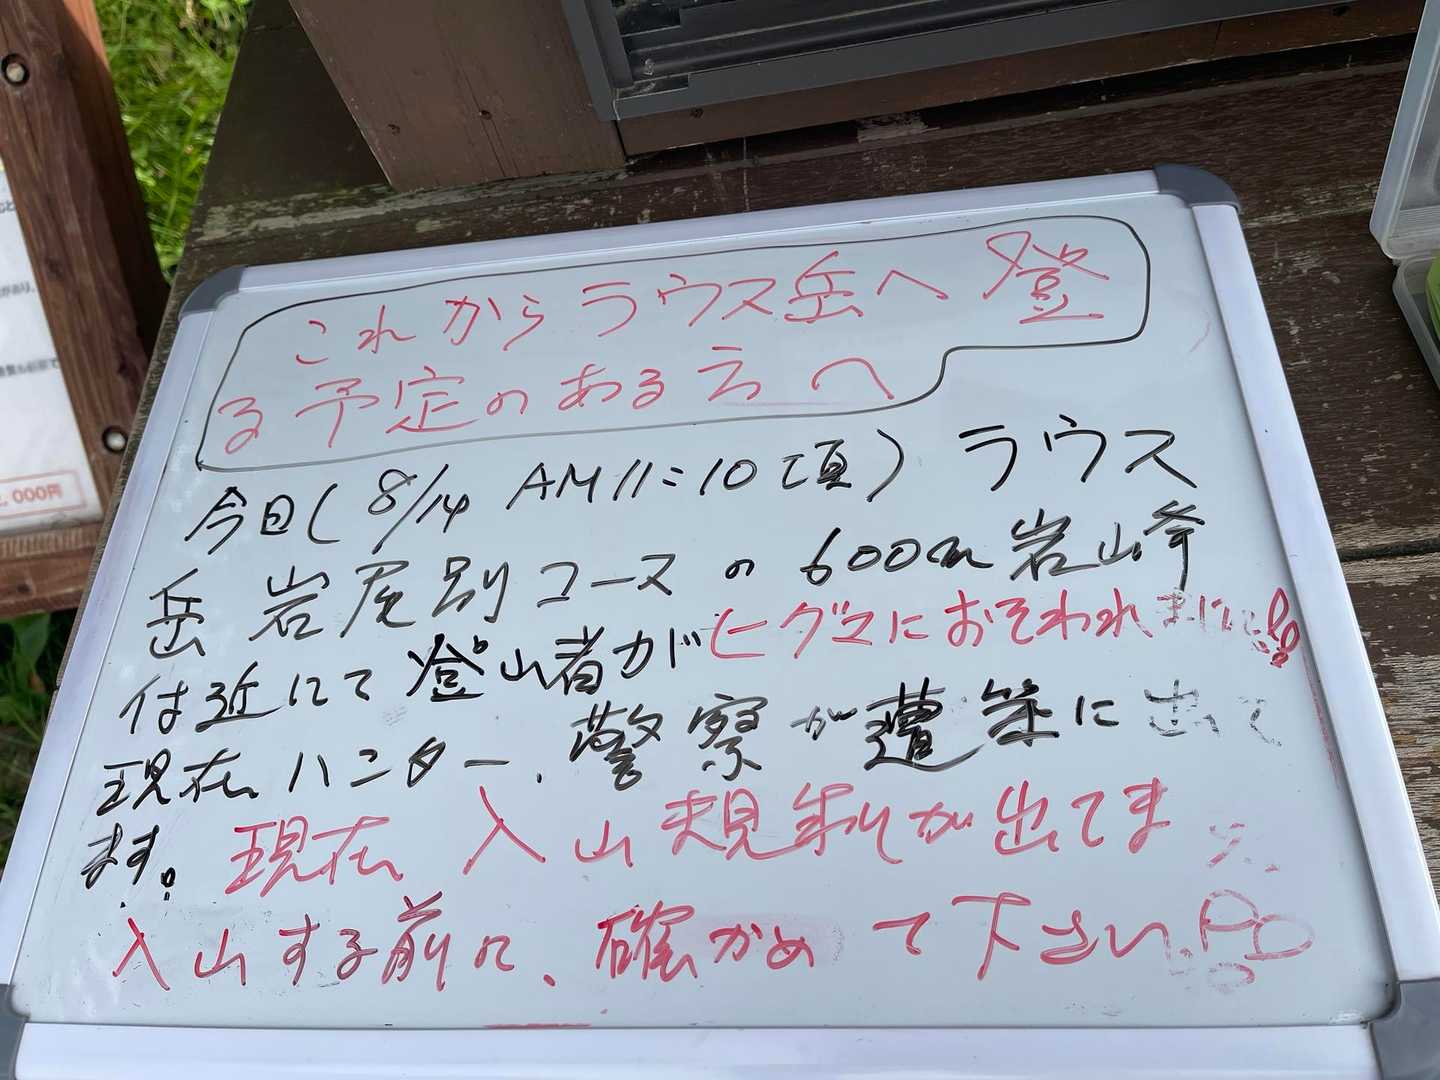 これからラウス岳へ登
る予定のある方へ
今日(8/14 AM11:10頃)ラウス
岳 岩尾別コースの600m岩山峰
付近にて登山者がヒグマにおそわれました!!
現在ハンター、警察が遭難に出て
ます。現在 入山規制が出てます。
入山する前に、確かめて下さい。!!
000円